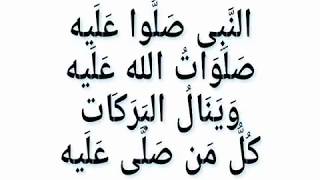 النَّبِى صَلُّوا عَلَيه
صَلَوَاتُ الله عَلَيه
وَيَنَالُ البَرَكَات
كُلُّ مَن صَلَّى عَلَيه